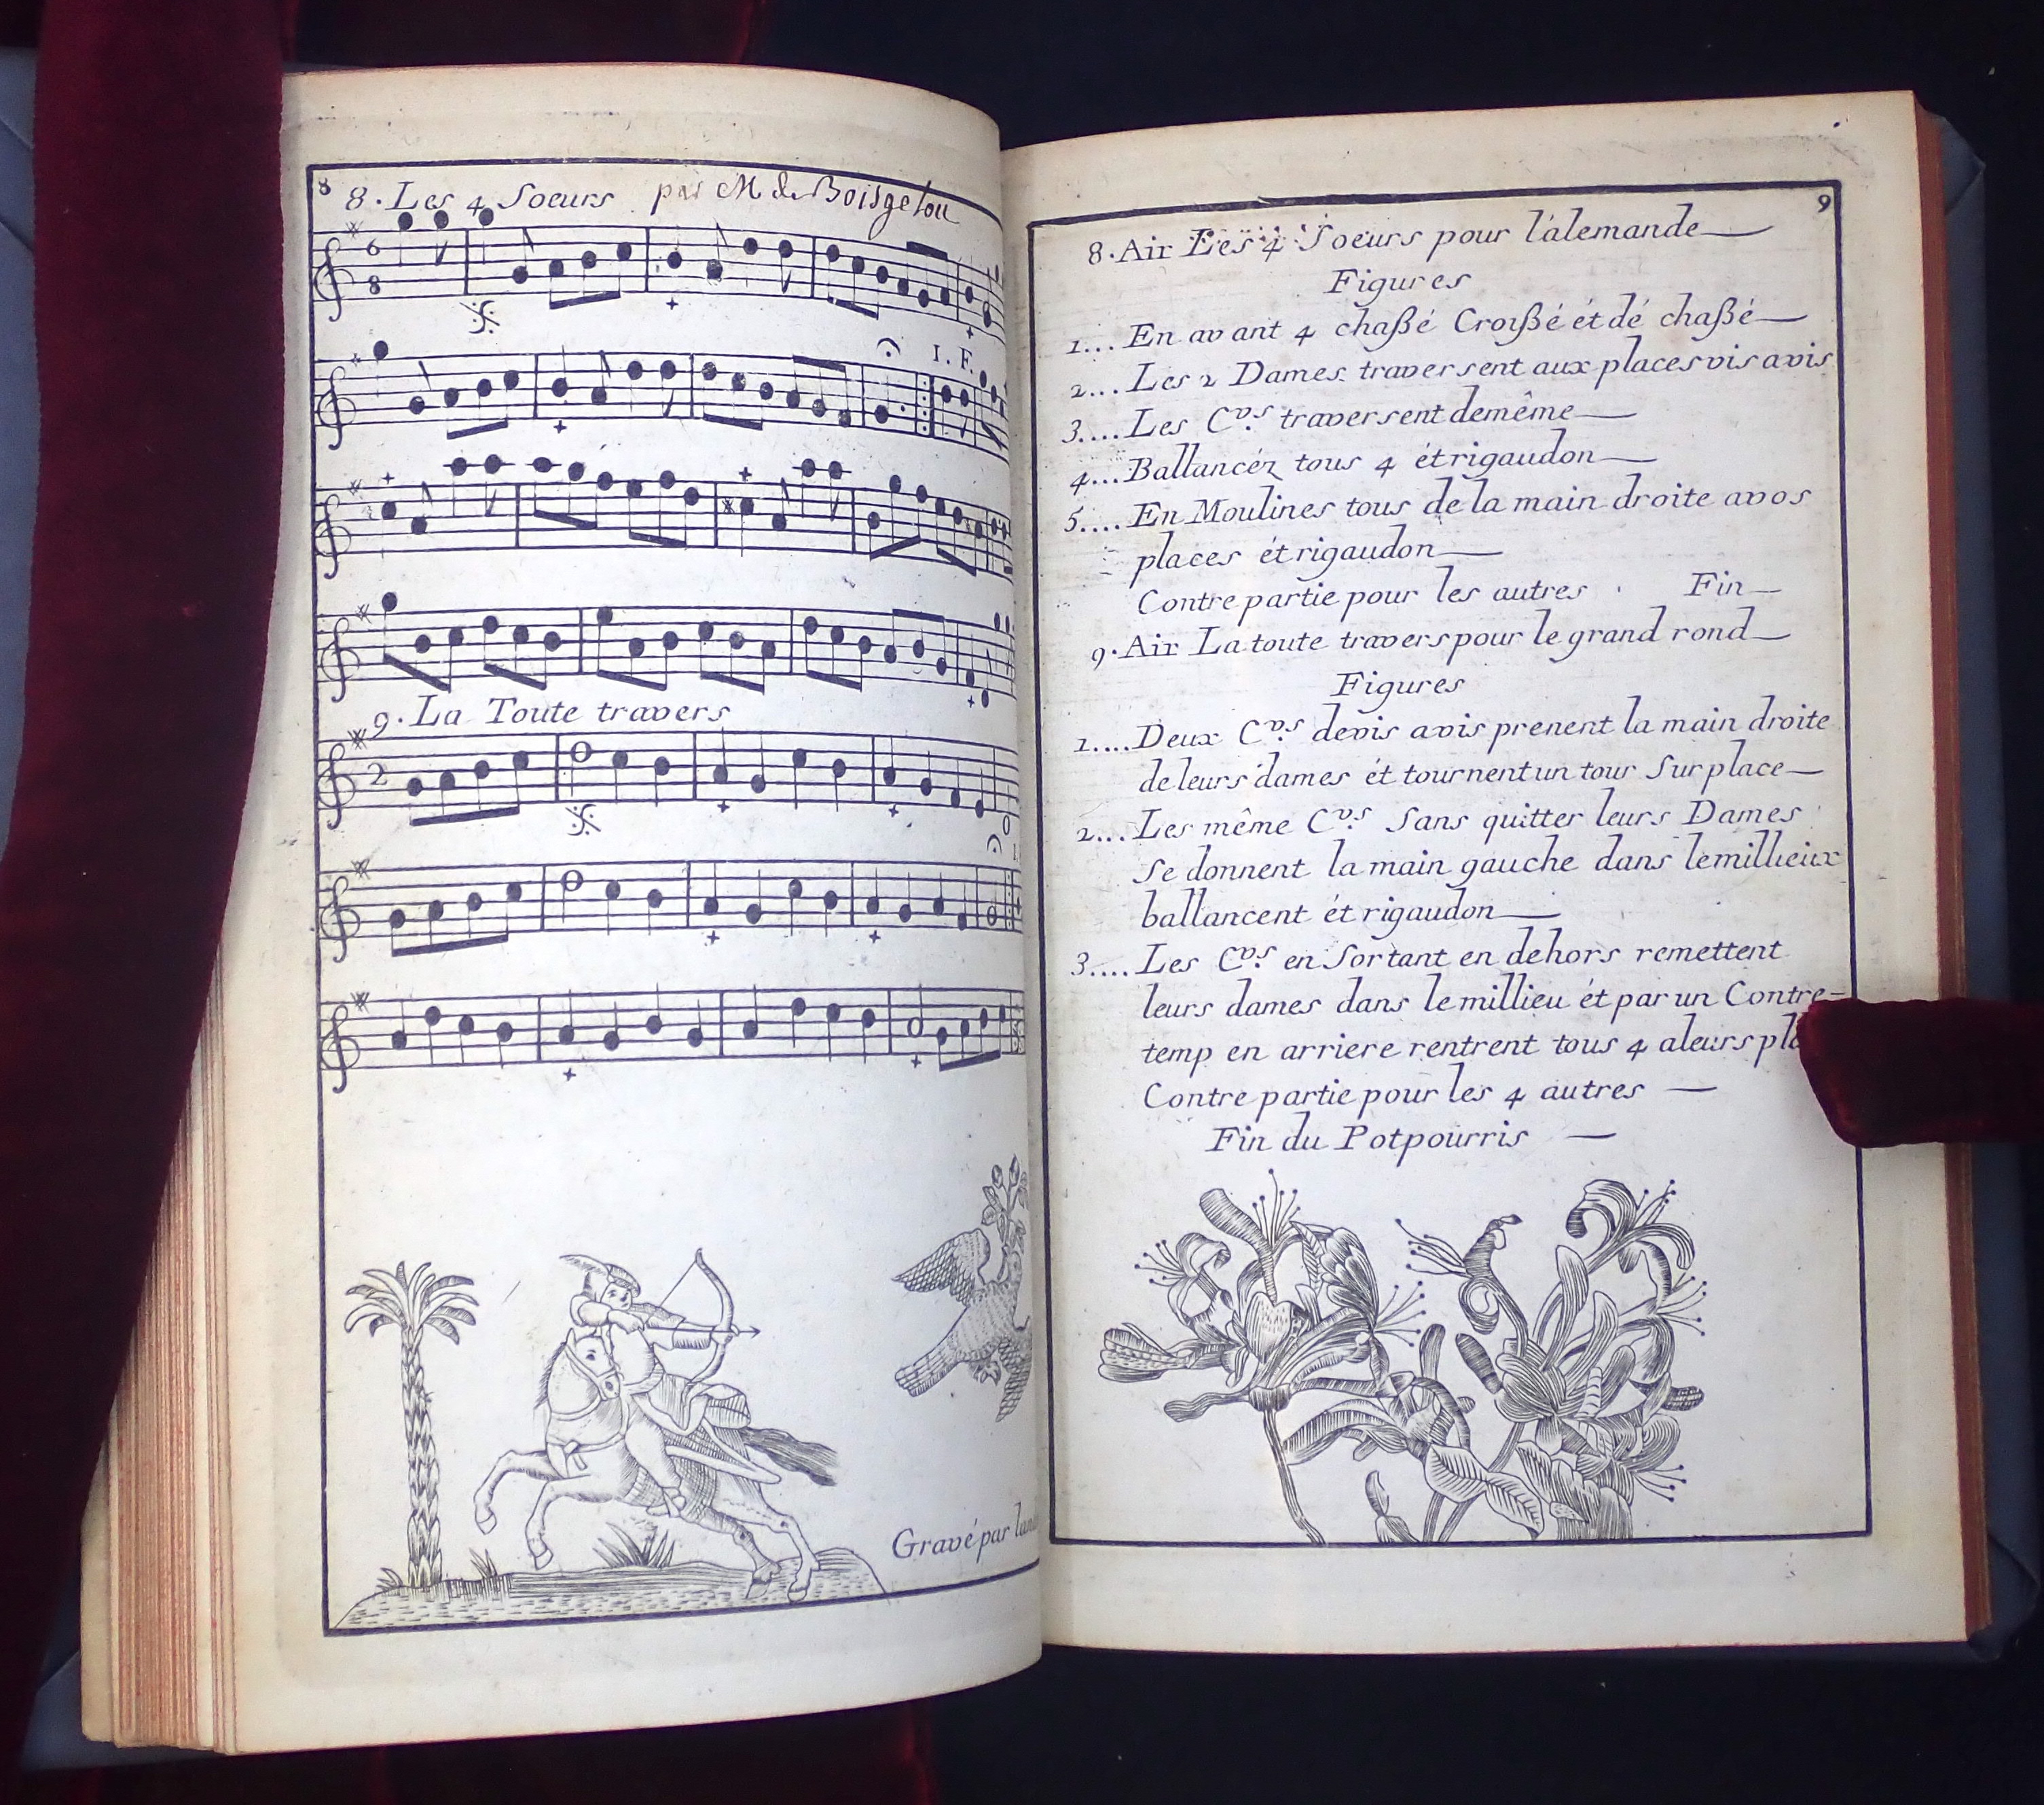 8
8. Les 4 Soeurs par M de Boisgelou
6
8
1. F.
9. La Toute travers
2
Gravé par
9
8. Air Les 4 Soeurs pour l'álemande
Figures
1... En avant 4 chaßé Croißé ét dé chaßé
2... Les 2 Dames traversent aux places vis avis
3.... Les Cvs. traversent demême
4... Ballancéz tous 4 ét rigaudon
5.... En Moulines tous de la main droite avos
places ét rigaudon
Contre partie pour les autres . Fin
9. Air La toute travers pour le grand rond
Figures
1.... Deux Cvs. devis avis prenent la main droite
de leurs dames ét tournent un tour Sur place
2... Les même Cvs. Sans quitter leurs Dames
Se donnent la main gauche dans lemillieux
ballancent ét rigaudon
3.... Les Cvs. en Sortant en dehors remettent
leurs dames dans le millieu ét par un Contre-
temp en arriere rentrent tous 4 aleurs
Contre partie pour les 4 autres
Fin du Potpourris